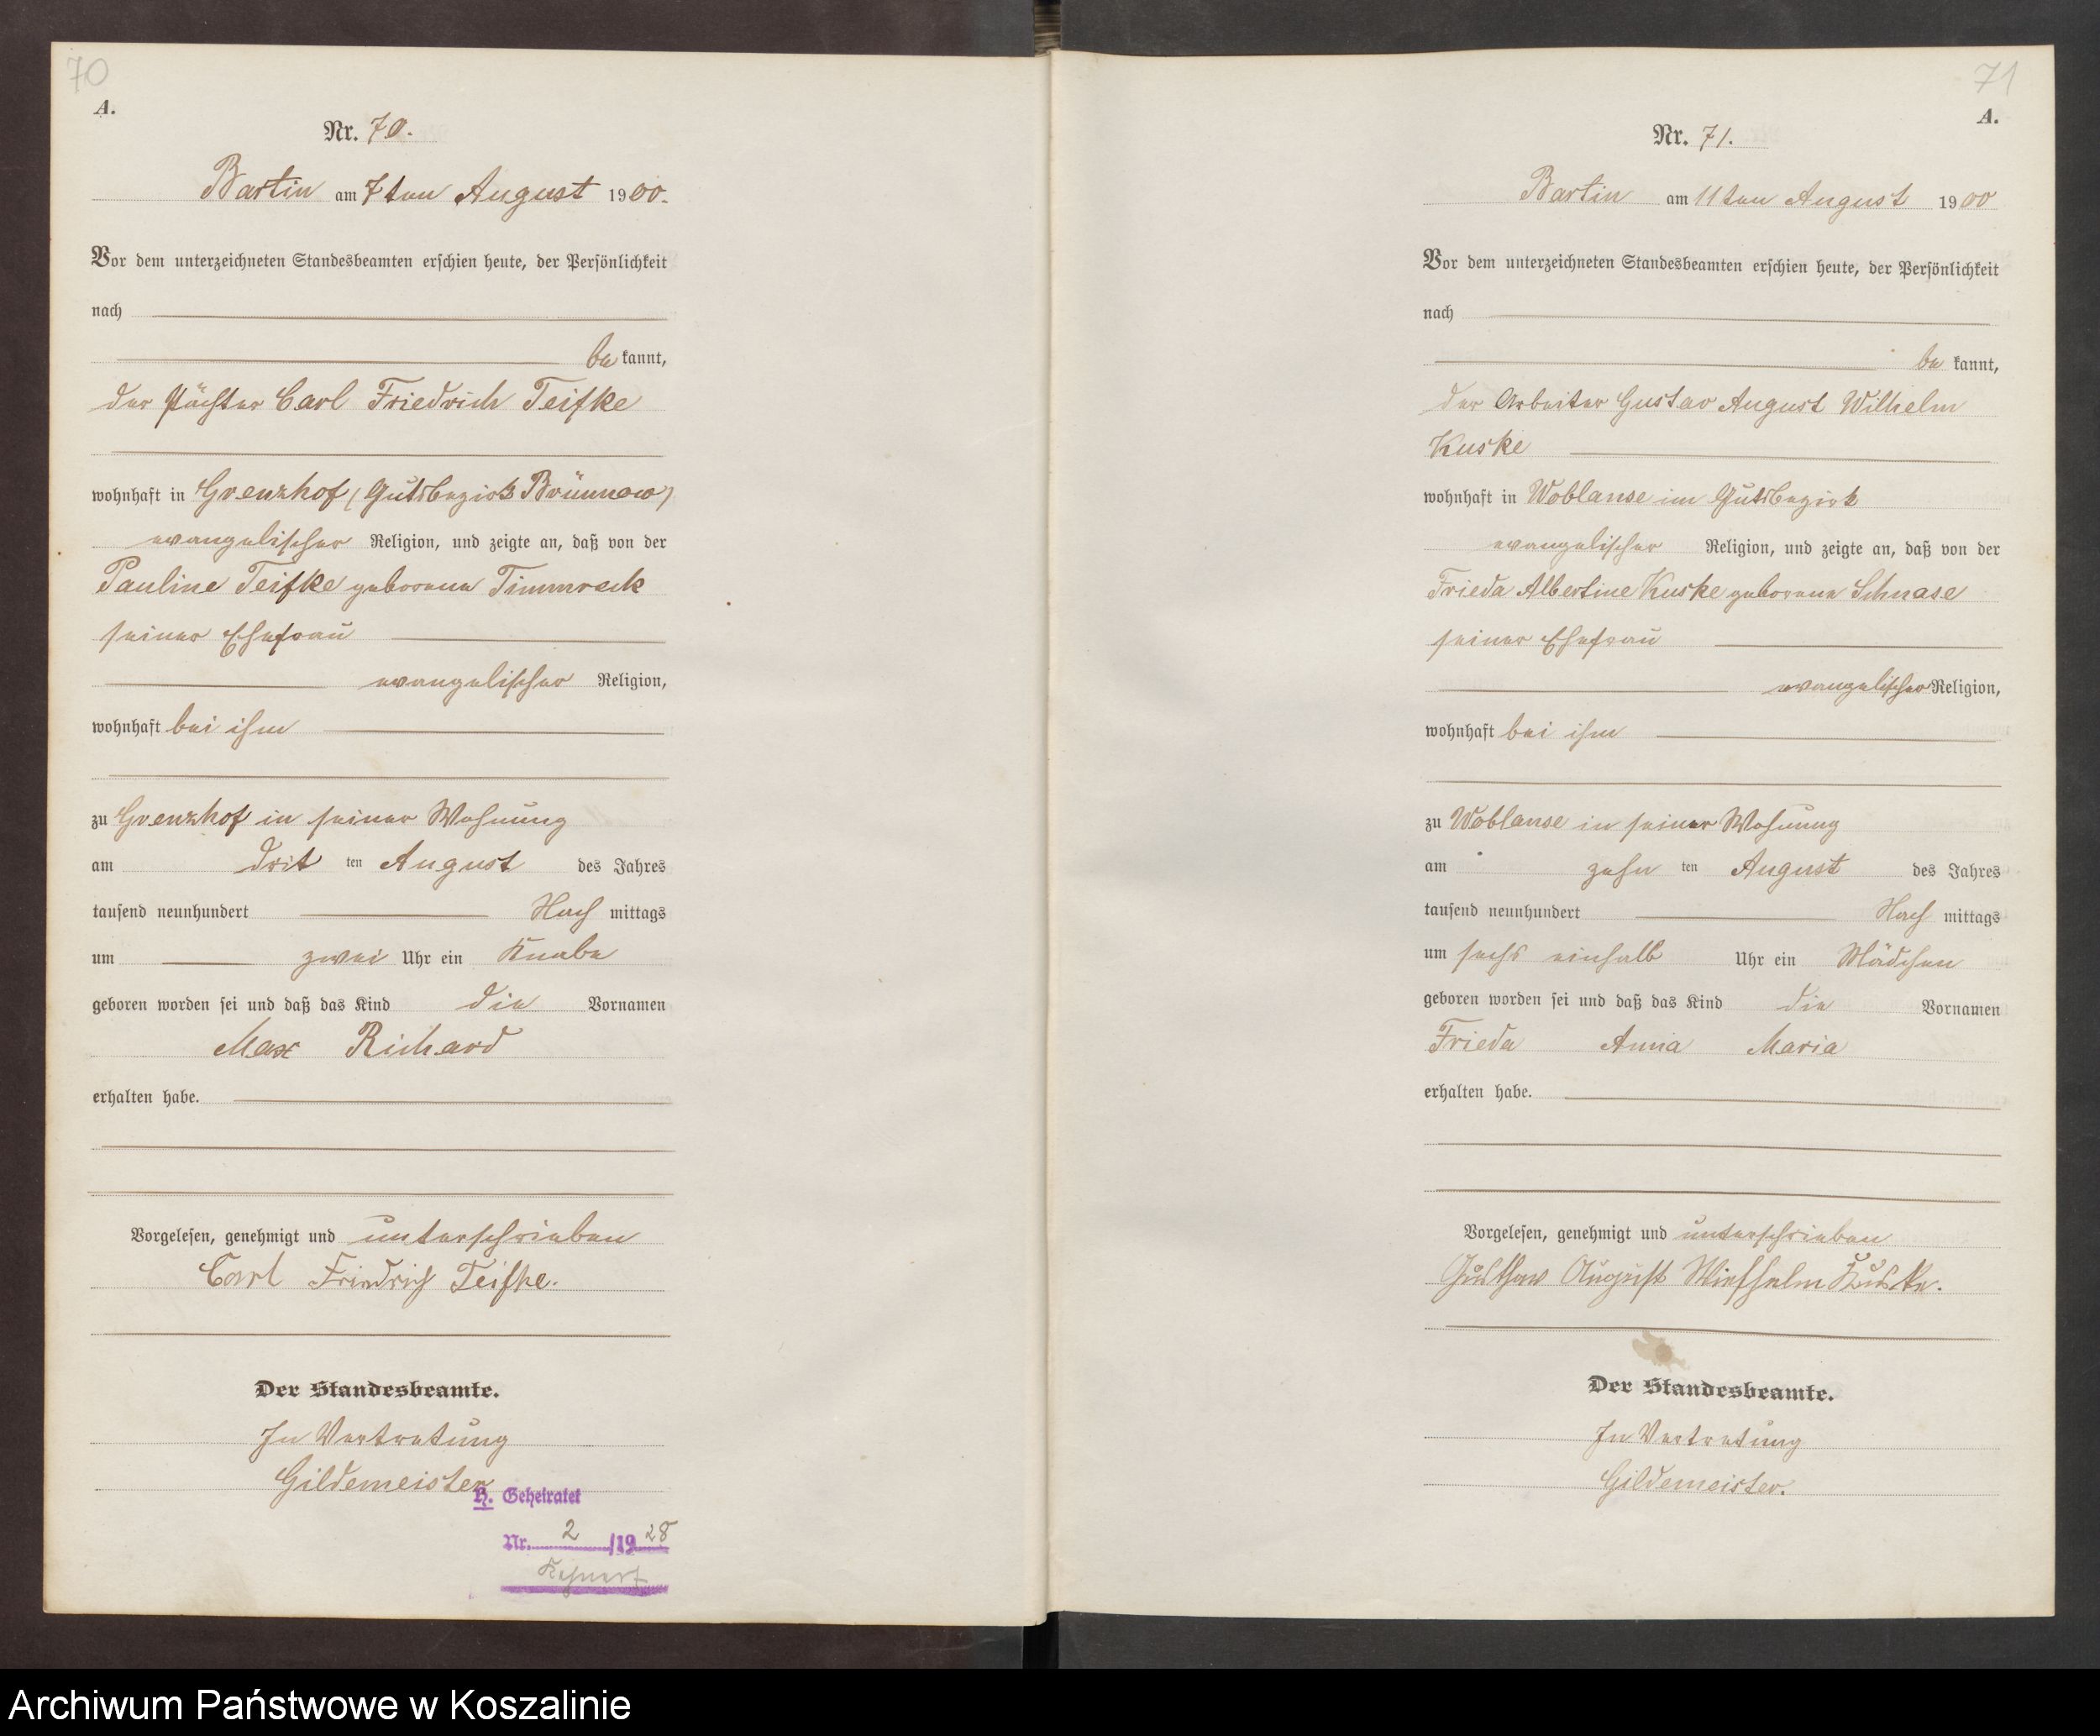 70
A.
Nr. 70.
Bartin am 7ten August 1900.
Vor dem unterzeichneten Standesbeamten erschien heute, der Persönlichkeit
nach
be kannt,
der Pächter Carl Friedrich Teifke
wohnhaft in Grenzhof (Gutsbezirk Brünnow)
evangelischer Religion, und zeigte an, daß von der
Pauline Teifke geborene Timmreck
seiner Ehefrau
evangelischer Religion,
wohnhaft bei ihm
zu Grenzhof in seiner Wohnung
am drit ten August des Jahres
tausend neunhundert Nach mittags
um zwei Uhr ein Knabe
geboren worden sei und daß das Kind die Vornamen
Max Richard
erhalten habe.
Vorgelesen, genehmigt und unterschrieben
Carl Friedrich Teifke.
Der Standesbeamte.
In Vertretung
Gildemeister
H. Geheiratet
Nr. 2 /1928
71
A.
Nr. 71.
Bartin am 11ten August 1900
Vor dem unterzeichneten Standesbeamten erschien heute, der Persönlichkeit
nach
be kannt,
der Arbeiter Gustav August Wilhelm
Kuske
wohnhaft in Woblanse im Gutsbezirk
evangelischer Religion, und zeigte an, daß von der
Frieda Albertine Kuske geborene Schnase
seiner Ehefrau
evangelischer Religion,
wohnhaft bei ihm
zu Woblanse in seiner Wohnung
am zehn ten August des Jahres
tausend neunhundert Nach mittags
um sechs einhalb Uhr ein Mädchen
geboren worden sei und daß das Kind die Vornamen
Frieda Anna Maria
erhalten habe.
Vorgelesen, genehmigt und unterschrieben
August Kuske.
Der Standesbeamte.
In Vertretung
Gildemeister.
Archiwum Państwowe w Koszalinie